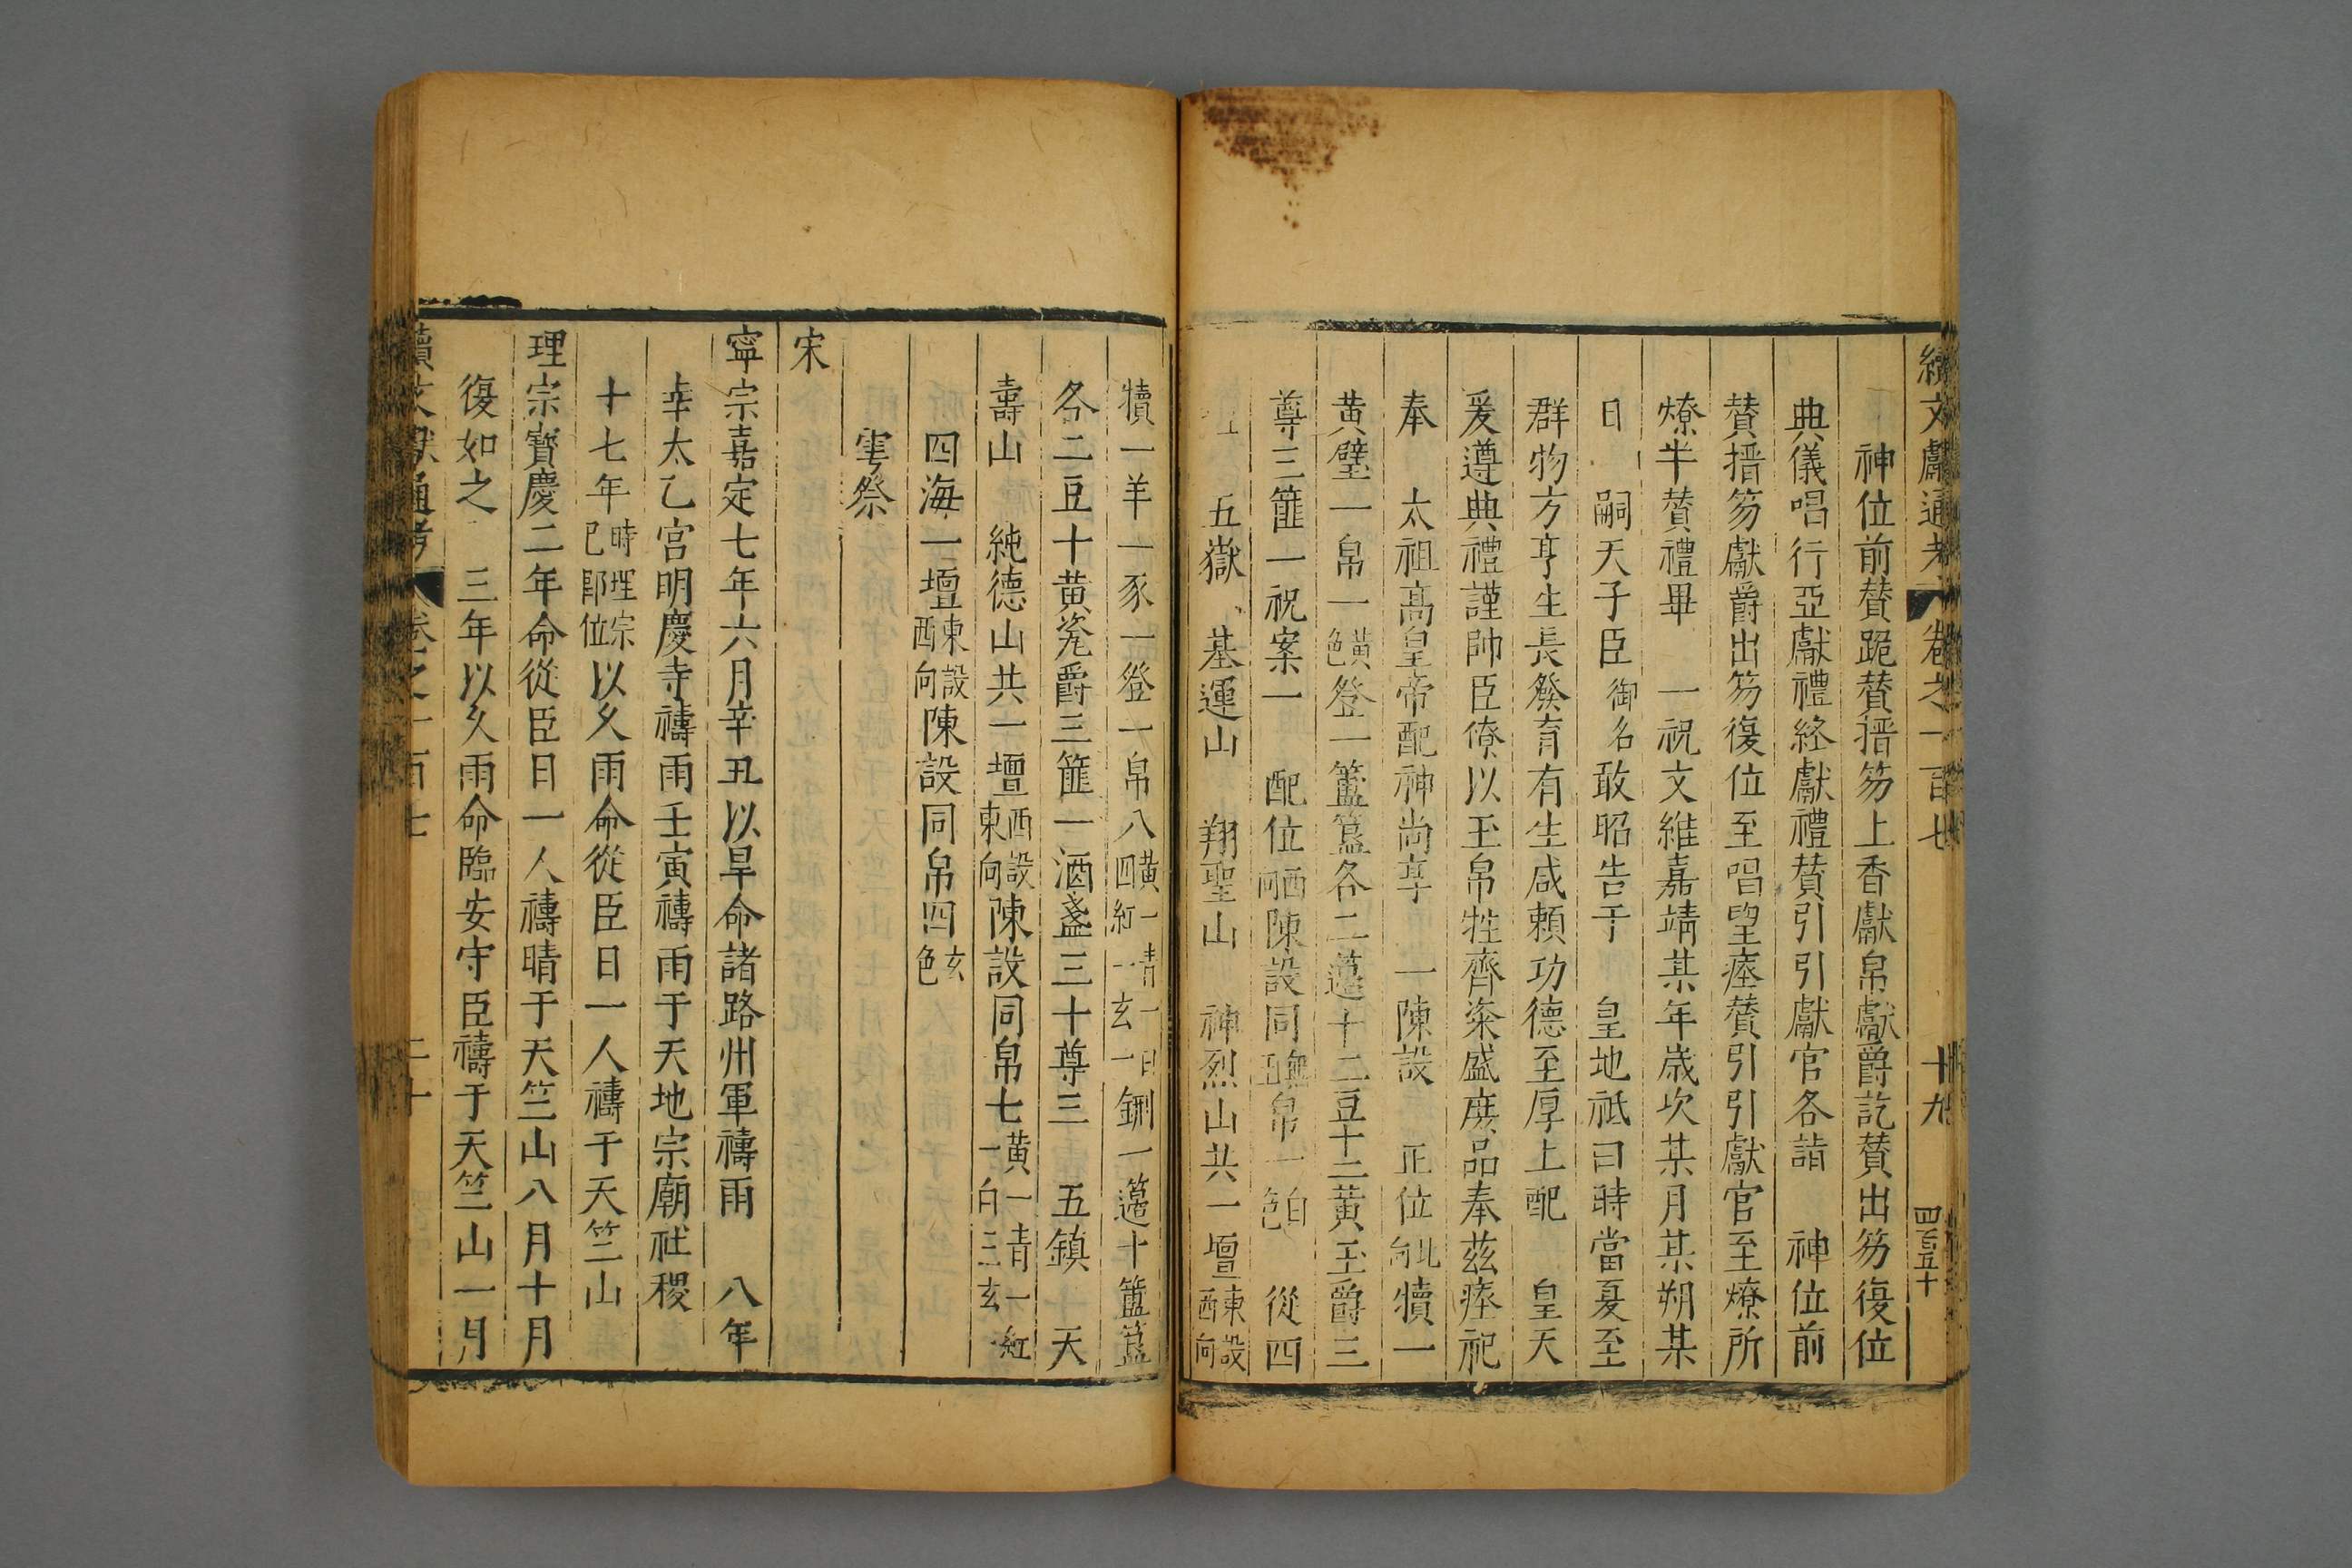 續文獻通考 卷之一百七 十九 四百五十
神位前贊跪贊搢笏上香獻帛獻爵訖贊出笏復位
典儀唱行亞獻禮終獻禮贊引引獻官各詣 神位前
贊搢笏獻爵出笏復位至唱望瘞贊引引獻官至燎所
燎半贊禮畢 一祝文維嘉靖某年歲次某月某朔某
日 嗣天子臣御名敢昭告于 皇地祇曰時當夏至
群物方亨生長發育有生咸賴功德至厚上配 皇天
爰遵典禮謹帥臣僚以玉帛牲齊粢盛庶品奉茲瘞祀
奉 太祖高皇帝配神尚享 一陳設 正位北向犢一
黃璧一帛一黃色登一簠簋各二籩十二豆十二黃玉爵三
尊三篚一祝案一 配位西向陳設同無玉帛一白色 從四
壇 五嶽 基運山 翔聖山 神烈山共一壇東設西向
犢一羊一豕一登一帛八黃一青一白四紅一玄一鉶一籩十簠簋
各二豆十黃瓷爵三篚一酒盞三十尊三 五鎮 天
壽山 純德山共一壇西設東向陳設同帛七黃一青一紅一白三玄一
四海一壇東設西向陳設同帛四玄色
雩祭
宋
寧宗嘉定七年六月辛丑以旱命諸路州軍禱雨 八年
幸太乙宮明慶寺禱雨壬寅禱雨于天地宗廟社稷
十七年時理宗已即位以久雨命從臣日一人禱于天竺山
理宗寶慶二年命從臣日一人禱晴于天竺山八月十月
復如之 三年以久雨命臨安守臣禱于天竺山一月
續文獻通考 卷之一百七 二十